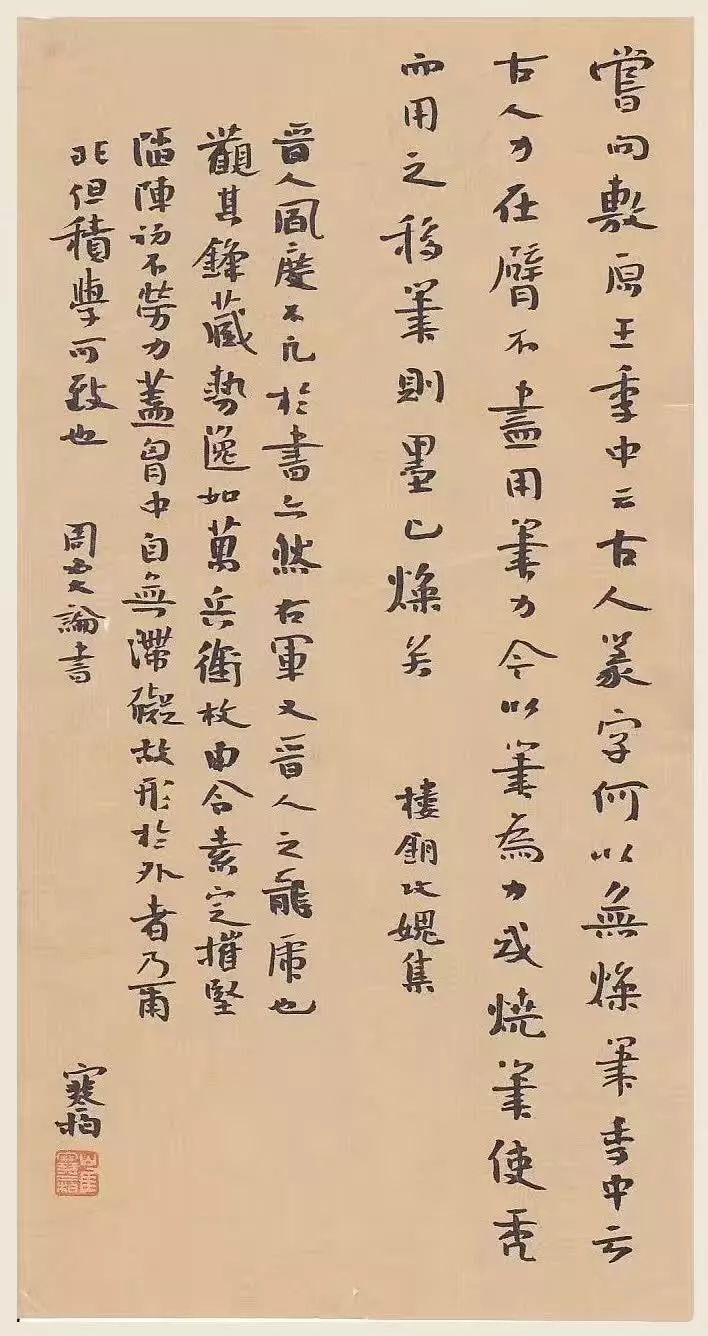 嘗問敷原王季中云古人篆字何以無燥筆季中云
古人力在臂不盡用筆力今以筆為力或燒筆使禿
而用之移筆則墨已燥矣 樓鑰攻媿集
晉人風度不凡於書亦然右軍又晉人之龍虎也
觀其鋒藏勢逸如萬兵銜枚申令素定摧堅
陷陣初不勞力蓋胷中自無滯礙故形於外者乃爾
非但積學可致也 周必大論書
寒柏